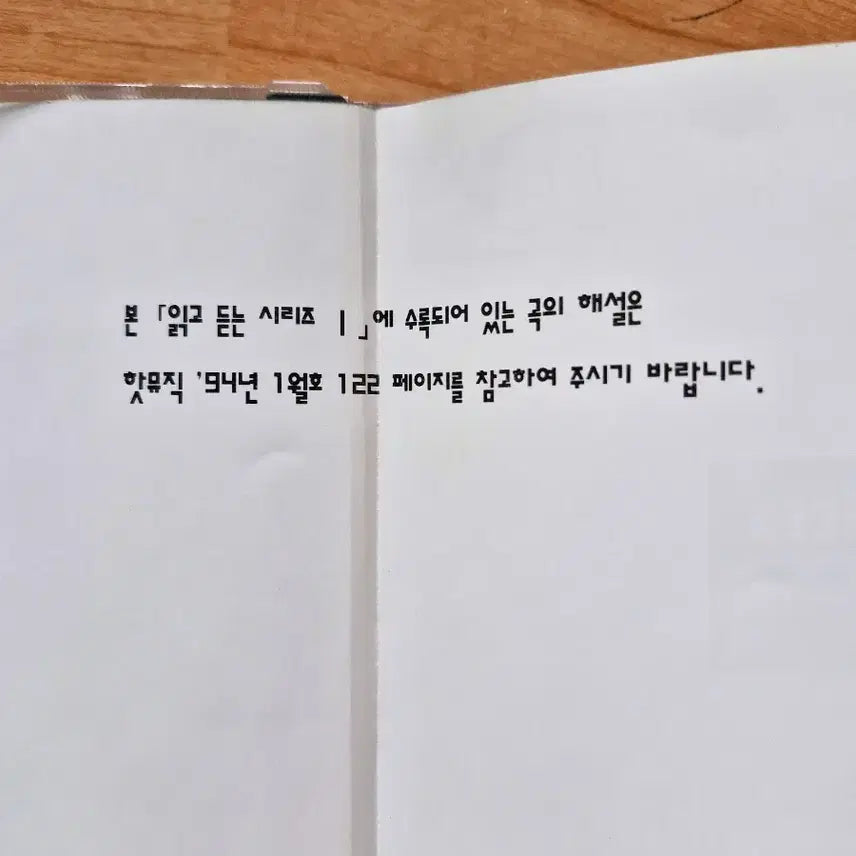 본 「읽고 듣는 시리즈 1」에 수록되어 있는 곡의 해설은
핫뮤직 '94년 1월호 122 페이지를 참고하여 주시기 바랍니다.